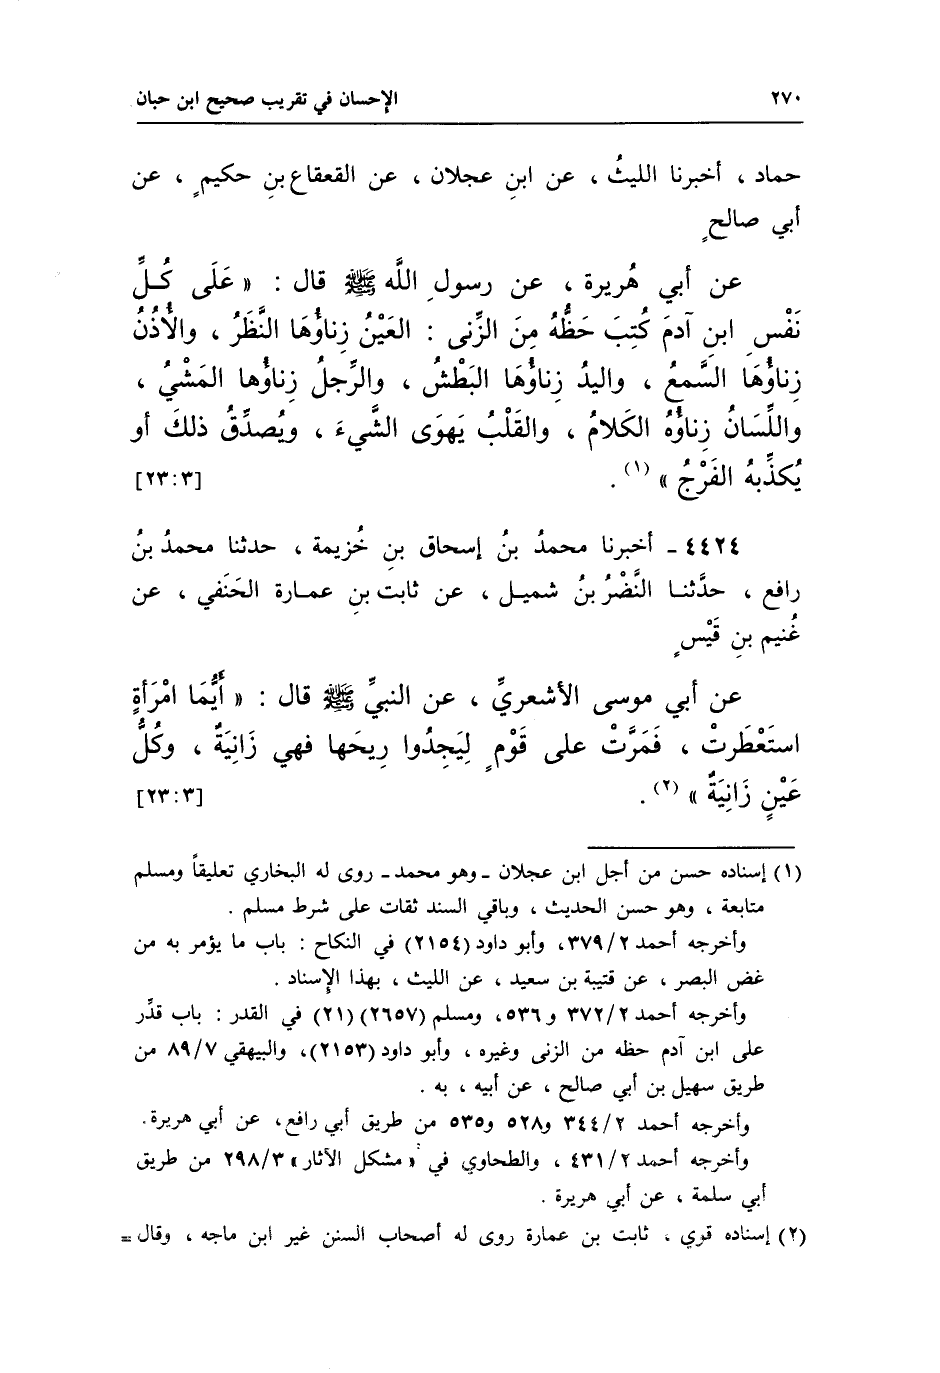 ٢٧٠ الإحسان في تقريب صحيح ابن حبان
حماد ، أخبرنا الليثُ ، عن ابنِ عجلان ، عن القعقاع بنِ حكيمٍ ، عن
أبي صالحٍ
عن أبي هُريرة ، عن رسولِ اللَّه ﷺ قال : « عَلَى كُلِّ
نَفْسِ ابنِ آدمَ كُتِبَ حَظُّهُ مِنَ الزِّنى : العَيْنُ زِناؤُهَا النَّظَرُ ، والأُذُنُ
زِناؤُهَا السَّمعُ ، واليدُ زِناؤُهَا البَطْشُ ، والرِّجلُ زِناؤُها المَشْيُ ،
واللِّسَانُ زِناؤُهُ الكَلامُ ، والقَلْبُ يَهوَى الشَّيءَ ، ويُصدِّقُ ذلكَ أو
يُكذِّبهُ الفَرْجُ »(١) . [٣:٢٣]
٤٤٢٤ ـ أخبرنا محمدُ بنُ إسحاق بنِ خُزيمة ، حدثنا محمدُ بنُ
رافع ، حدَّثنا النَّضْرُ بنُ شميل ، عن ثابت بنِ عمارة الحَنَفي ، عن
غُنيم بنِ قَيْسٍ
عن أبي موسى الأشعريِّ ، عن النبيِّ ﷺ قال : « أَيُّمَا امْرَأةٍ
استَعْطَرتْ ، فَمَرَّتْ على قَوْمٍ لِيَجِدُوا رِيحَها فهي زَانِيَةٌ ، وكُلُّ
عَيْنٍ زَانِيَةٌ »(٢) . [٣:٢٣]
(١) إسناده حسن من أجل ابن عجلان ـ وهو محمد ـ روى له البخاري تعليقاً ومسلم
متابعة ، وهو حسن الحديث ، وباقي السند ثقات على شرط مسلم .
وأخرجه أحمد ٣٧٩/٢، وأبو داود (٢١٥٤) في النكاح : باب ما يؤمر به من
غض البصر ، عن قتيبة بن سعيد ، عن الليث ، بهذا الإسناد .
وأخرجه أحمد ٣٧٢/٢ و ٥٣٦، ومسلم (٢٦٥٧) (٢١) في القدر : باب قدِّر
على ابن آدم حظه من الزنى وغيره ، وأبو داود (٢١٥٣)، والبيهقي ٨٩/٧ من
طريق سهيل بن أبي صالح ، عن أبيه ، به .
وأخرجه أحمد ٣٤٤/٢ و٥٢٨ و٥٣٥ من طريق أبي رافع، عن أبي هريرة .
وأخرجه أحمد ٤٣١/٢ ، والطحاوي في «مشكل الآثار» ٢٩٨/٣ من طريق
أبي سلمة ، عن أبي هريرة .
(٢) إسناده قوي ، ثابت بن عمارة روى له أصحاب السنن غير ابن ماجه ، وقال =